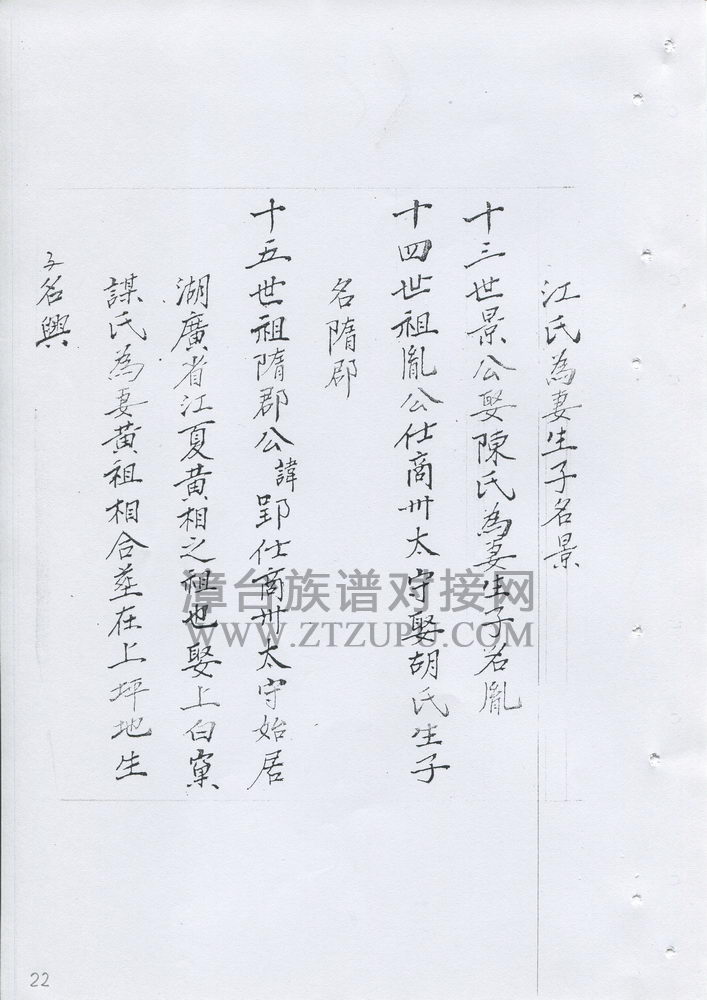 江氏為妻生子名景
十三世景公娶陳氏為妻生子名胤
十四世祖胤公仕商卅太守娶胡氏生子
名隋郡
十五世祖隋郡公諱郢仕商卅太守始居
湖廣省江夏黄相之祖也娶上白窠
謀氏為妻黄祖相合塟在上坪地生
子名興
漳台族谱对接网
WWW.ZTZUPU.COM
22